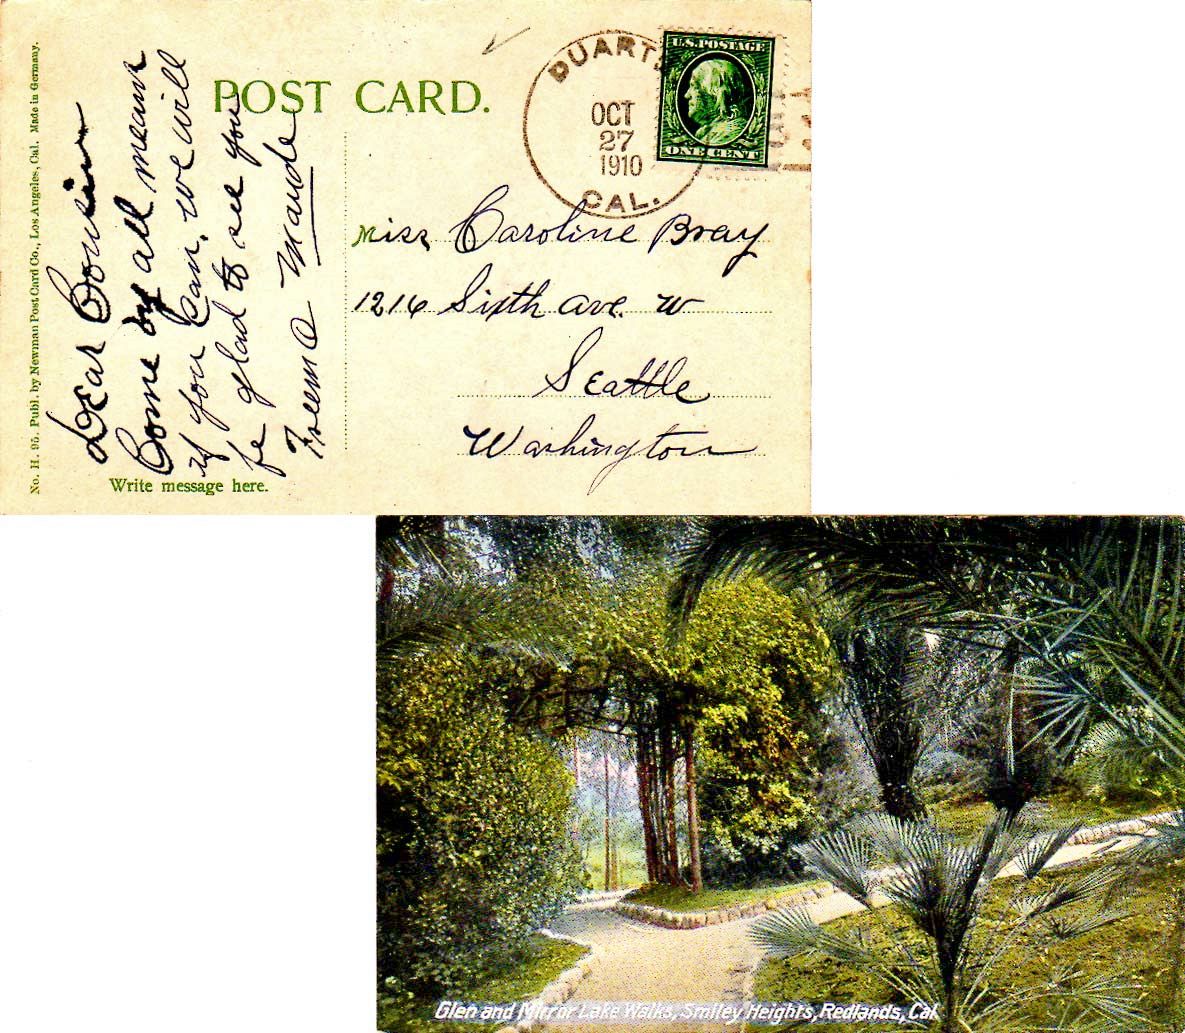 No. H. 95. Publ. by Newman Post Card Co., Los Angeles, Cal. Made in Germany.
POST CARD.
Dear Cousin
Come by all means
if you Can. we will
be glad to see you
Maude
Write message here.
DUART
OCT
27
1910
CAL.
U.S. POSTAGE
ONE CENT
Miss Caroline Bray
1216 Sixth Ave. W
Seattle
Washington
Glen and Mirror Lake Walks, Smiley Heights, Redlands, Cal.